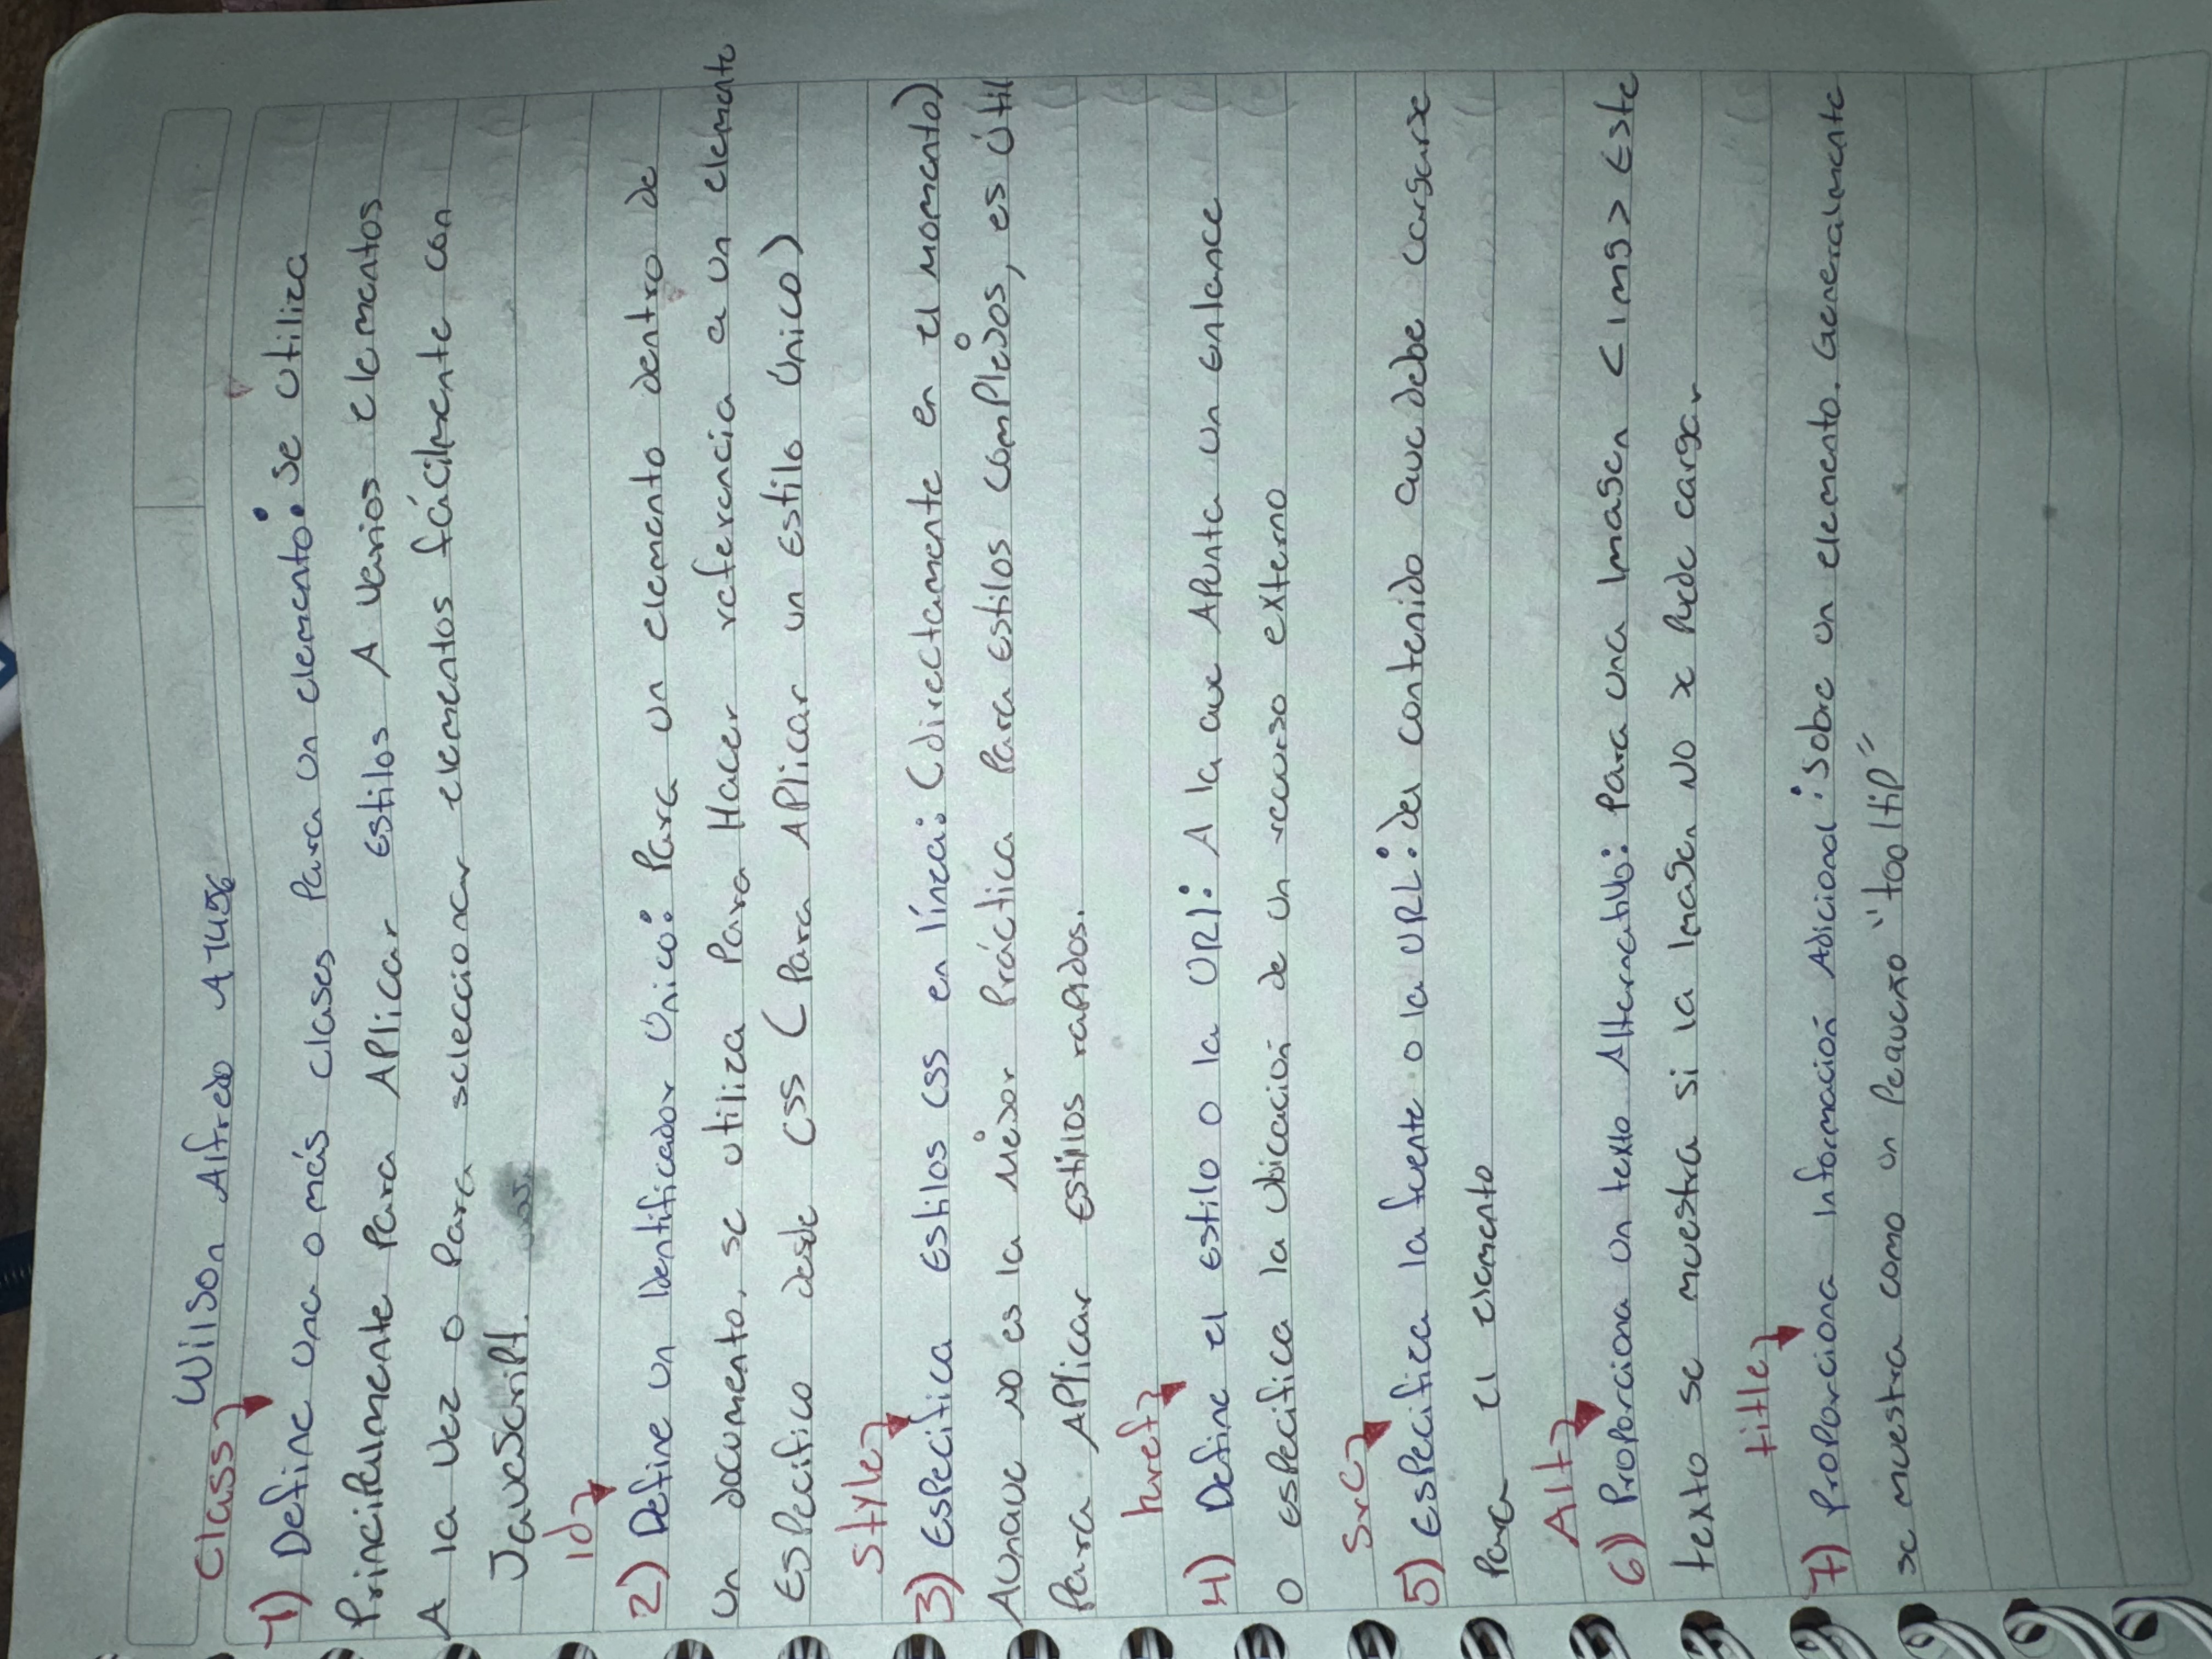 Wilson Alfredo
Class
1) Define una o más clases Para un elemento: se utiliza
Principalmente Para APlicar Estilos A varios elementos
A la vez o Para seleccionar elementos fácilmente con
JavaScriPt.
Id
2) Define un Identificador Único: Para un elemento dentro de
un documento, se utiliza Para Hacer referencia a un elemento
EsPecifico desde CSS (Para APlicar un Estilo Único)
Style
3) EsPecifica Estilos CSS en línea: (directamente en el Momento)
AUnque no es la Mejor Práctica Para Estilos comPlejos, es Útil
Para APlicar Estilos raPidos.
href
4) Define el Estilo o la URI: A la que APunta un Enlance
o esPecifica la Ubicación de un recurso externo
Src
5) EsPecifica la fuente o la URL: del contenido que debe cargarse
Para el elemento
Alt
6) ProPorciona un texto Alternativo: Para una Imagen <img> Este
texto se muestra si la Imagen NO se Puede cargar
title
7) ProPorciona Información Adicional: Sobre un elemento. Generalmente
se muestra como un Pequeño "tooltiP"